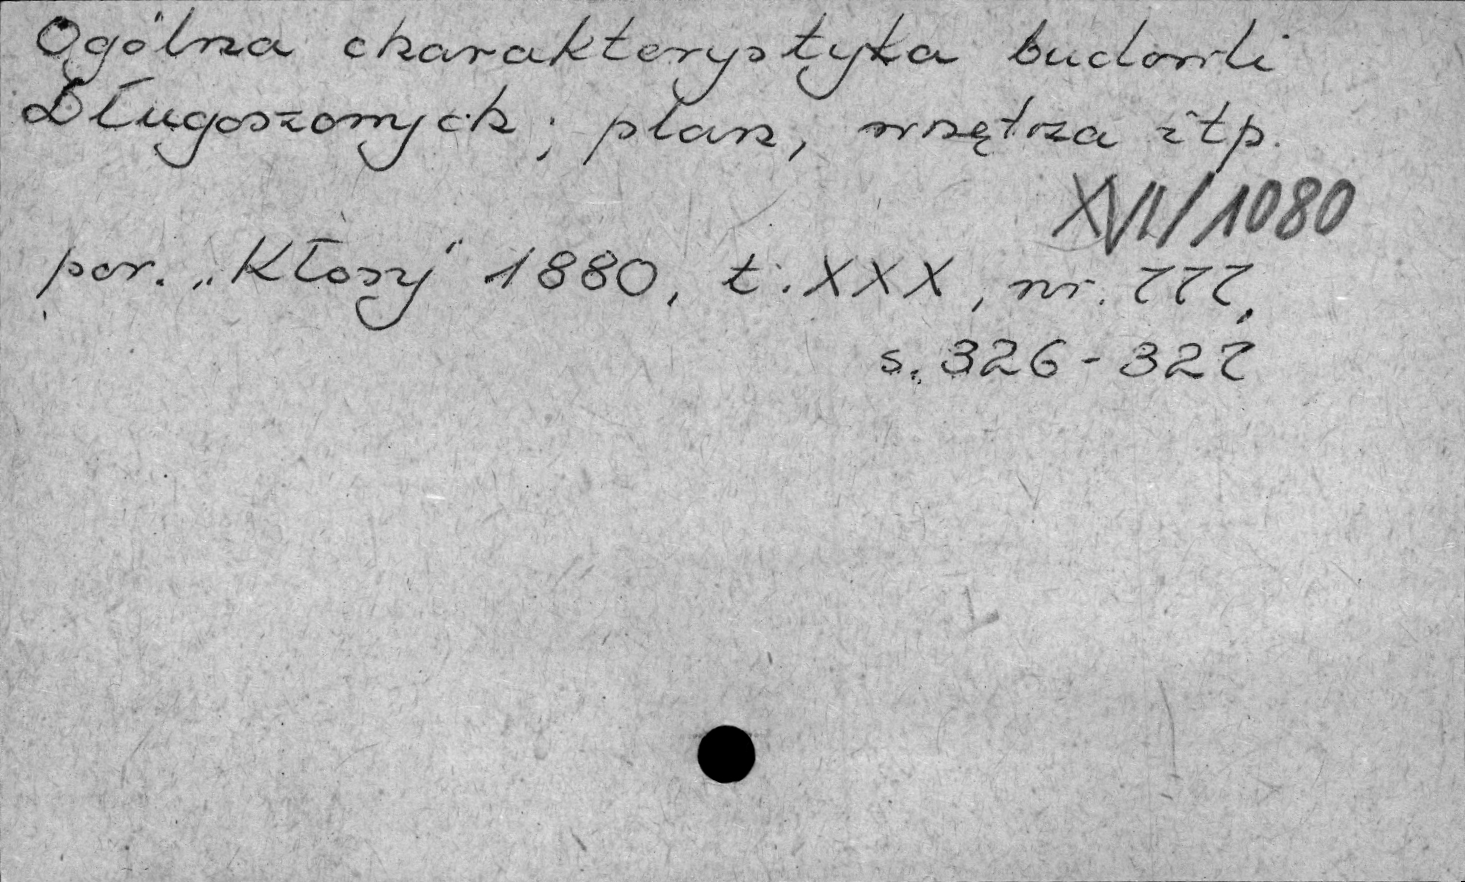 Ogólna charakterystyka budowli
Długoszowych; plan, wnętrza itp.
XVII/1080
por. „Kłosy" 1880, t. XXX, nr. 777,
s. 326-327